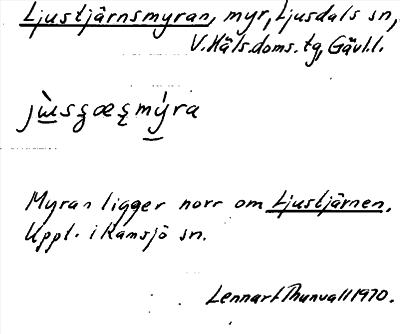 Ljustjärnsmyran, myr, Ljusdals sn,
V. Häls. doms. tg, Gävl. l.
Myran ligger norr om Ljustjärnen.
Uppt. i Ramsjö sn.
Lennart Thunvall 1970.